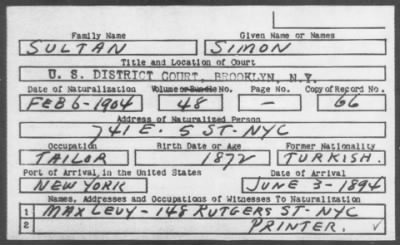 Family Name Given Name or Names
SULTAN SIMON
Title and Location of Court
U. S. DISTRICT COURT, BROOKLYN, N.Y.
Date of Naturalization Volume or Bundle No. Page No. Copy of Record No.
FEB 6-1904 48 — 66
Address of Naturalized Person
741 E. 5 ST-NYC
Occupation Birth Date or Age Former Nationality
TAILOR 1872 TURKISH.
Port of Arrival, in the United States Date of Arrival
NEW YORK JUNE 3-1894
Names, Addresses and Occupations of Witnesses To Naturalization
1 MAX LEVY-148 RUTGERS ST-NYC
2 PRINTER. ✓